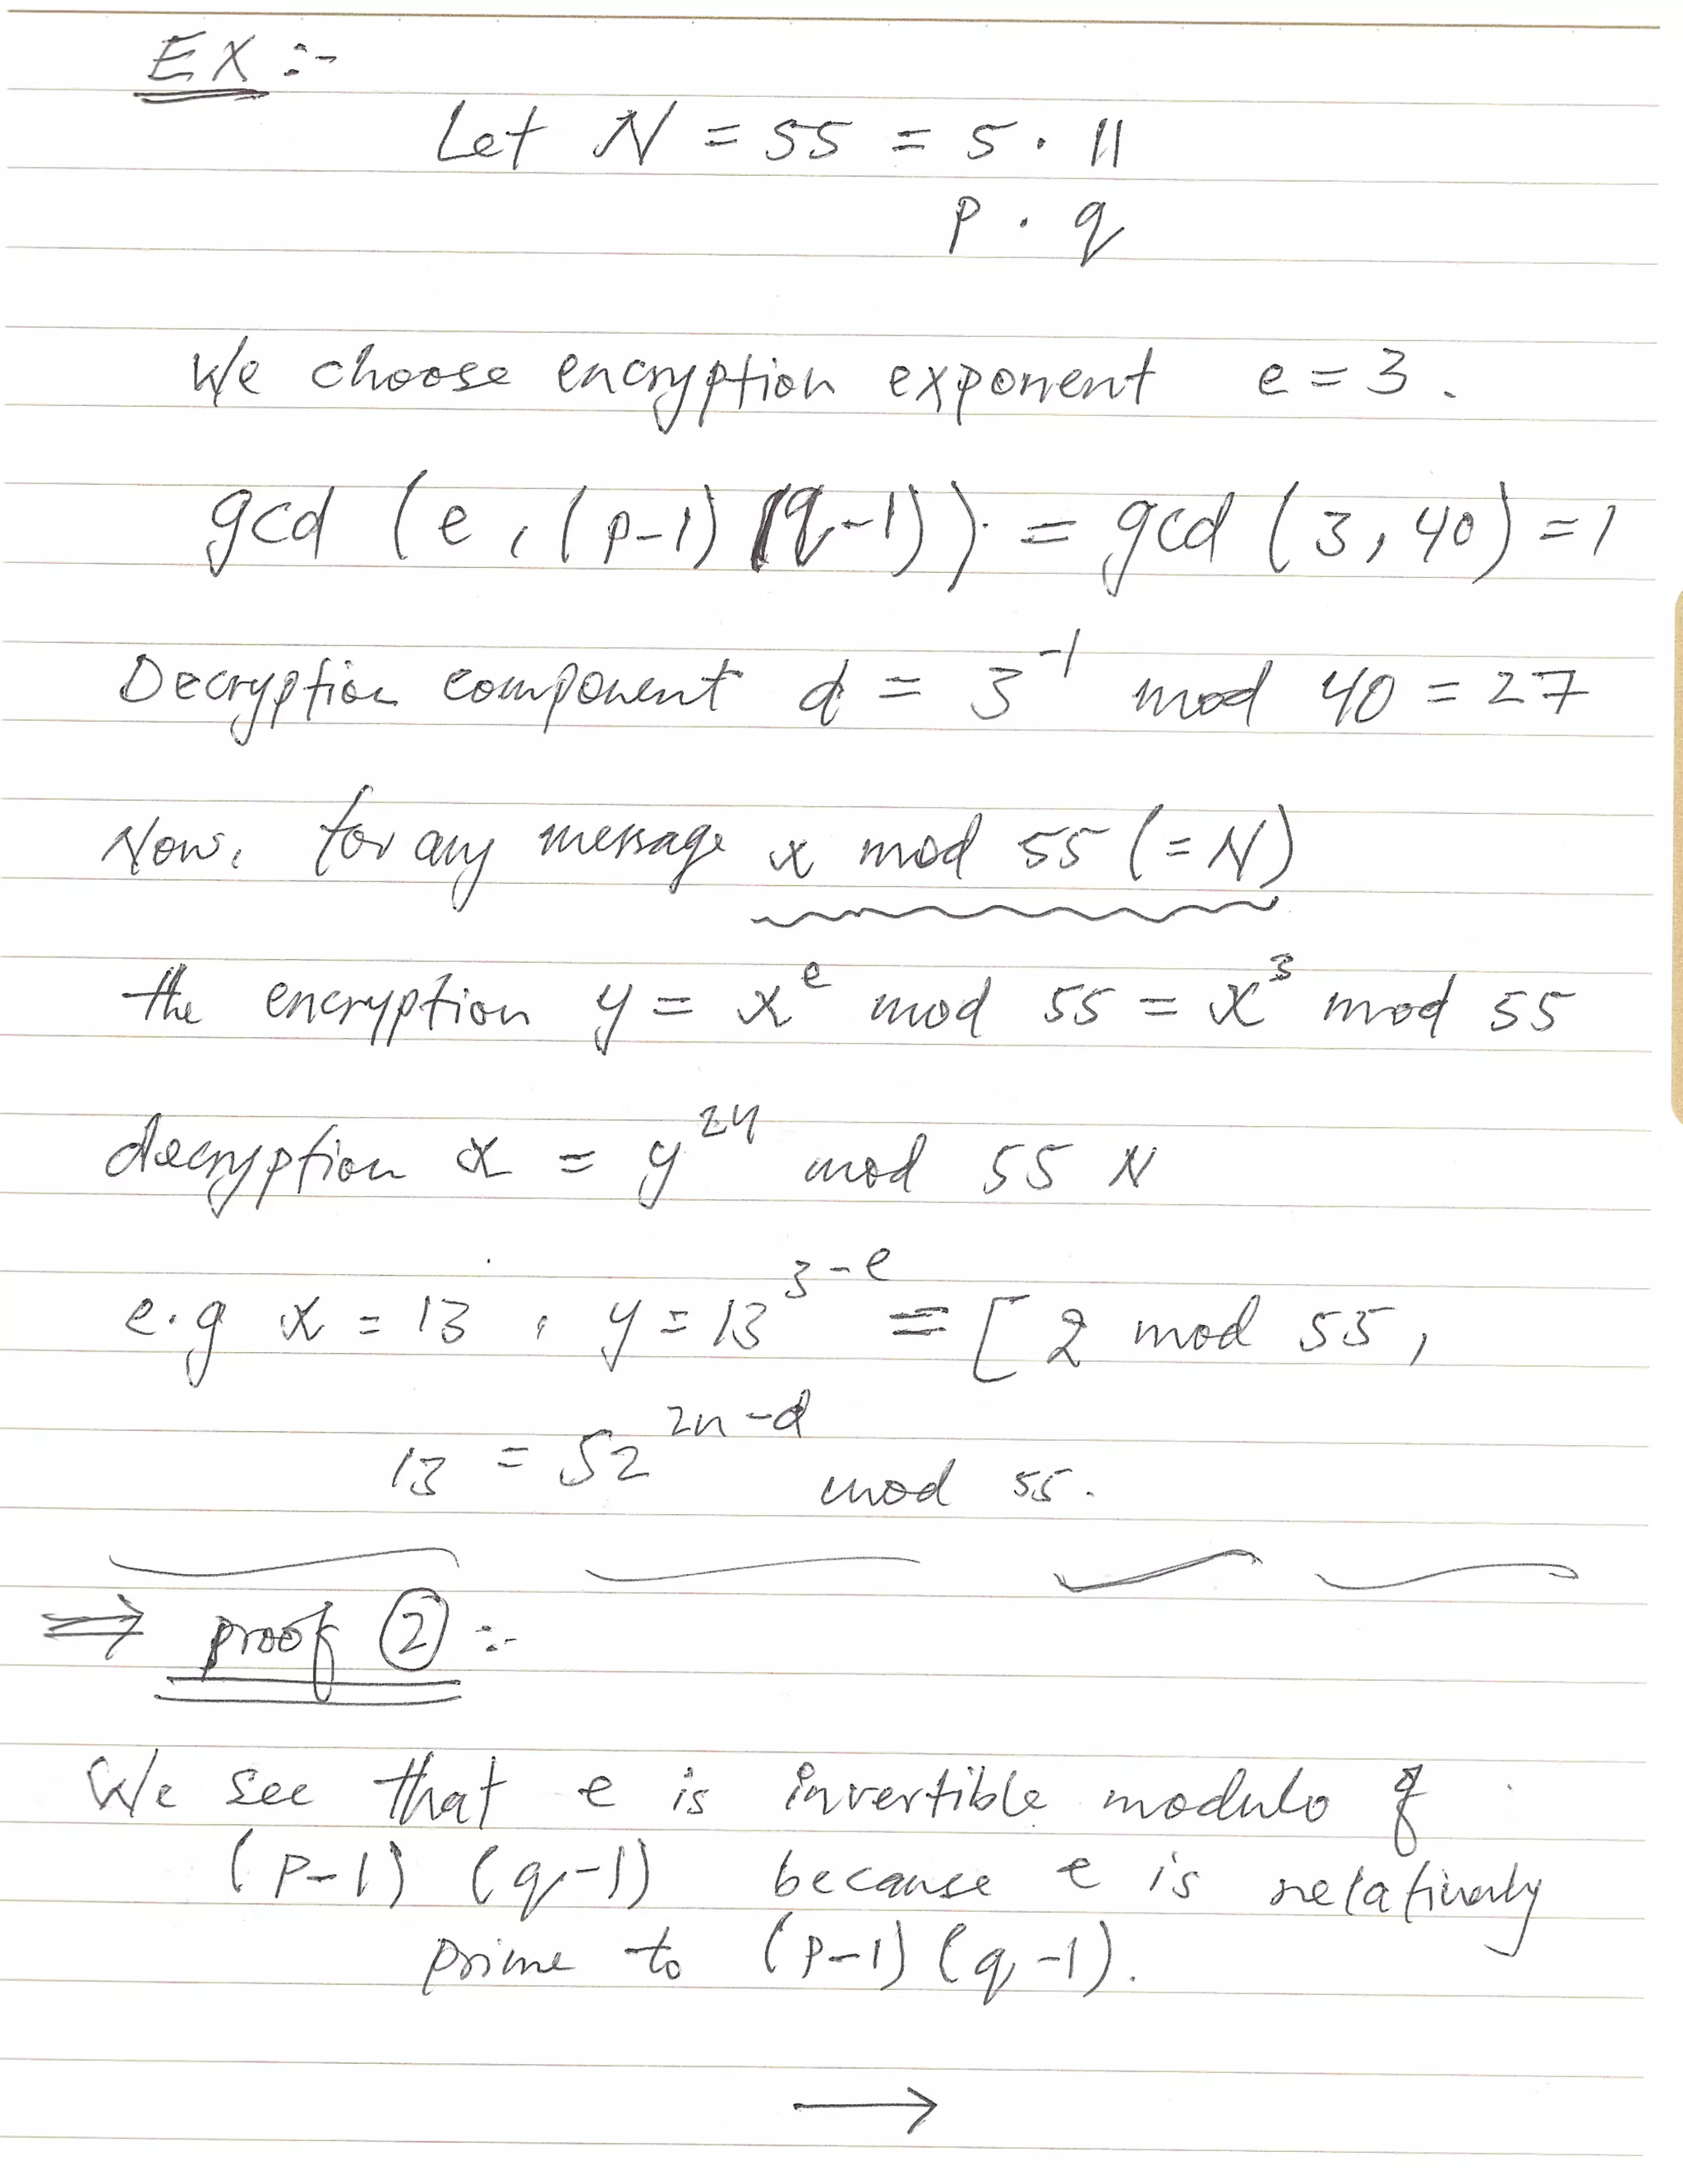 EX :-
Let N = 55 = 5 . 11
p . q
We choose encryption exponent e = 3.
gcd (e, (p-1) (q-1)) = gcd (3, 40) = 1
Decryption component d = 3^-1 mod 40 = 27
Now, for any message x mod 55 (= N)
the encryption y = x^e mod 55 = x^3 mod 55
decryption x = y^24 mod 55 N
e.g x = 13, y = 13^3-e = [ 2 mod 55,
13 = 52^2n-d mod 55.
⇒ proof ② :-
We see that e is invertible modulo of
(p-1) (q-1) because e is relatively
prime to (p-1) (q-1).
→